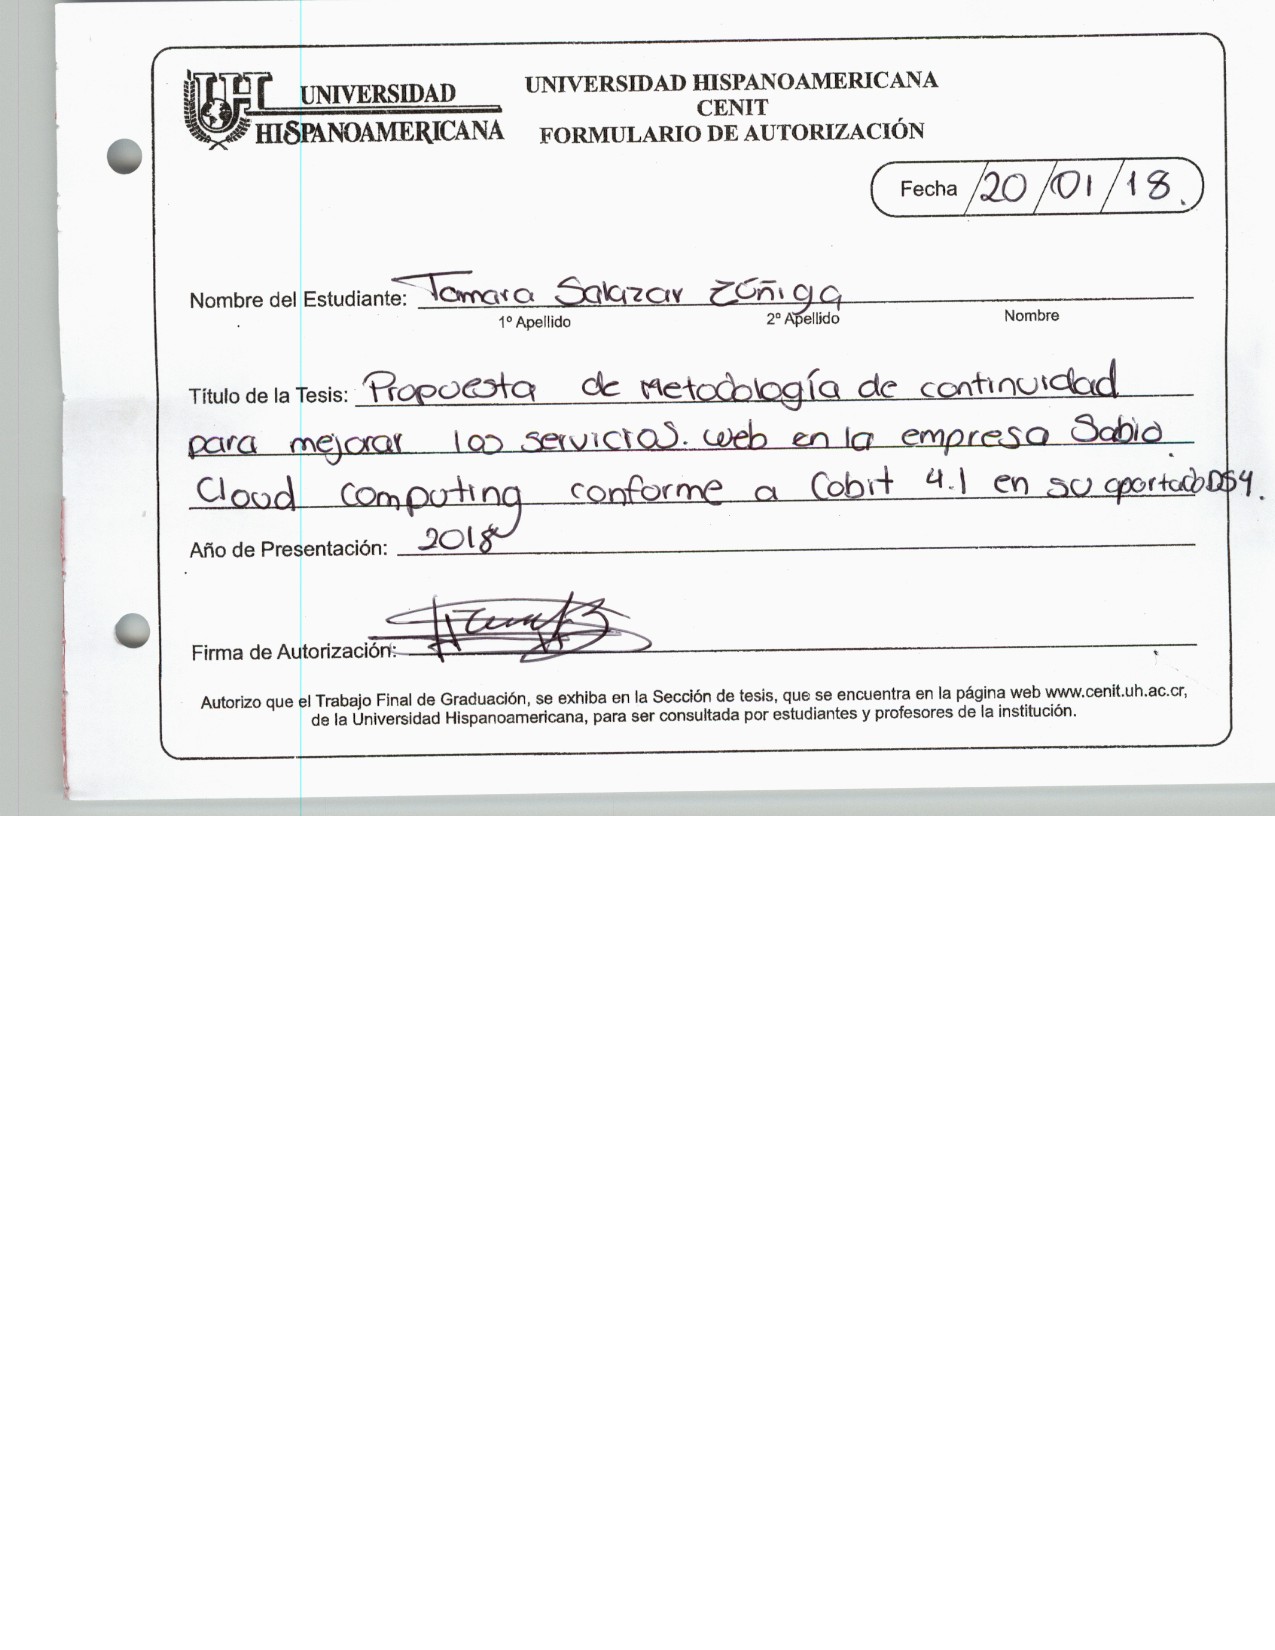 UNIVERSIDAD
HISPANOAMERICANA
UNIVERSIDAD HISPANOAMERICANA
CENIT
FORMULARIO DE AUTORIZACIÓN
Fecha /20/01/18.
Nombre del Estudiante: Tamara Salazar Zúñiga
1º Apellido 2º Apellido Nombre
Título de la Tesis: Propuesta de Metodología de continuidad
para mejorar los servicios web en la empresa Sabio
Cloud Computing conforme a Cobit 4.1 en su apartado DS4.
Año de Presentación: 2018
Firma de Autorización:
Autorizo que el Trabajo Final de Graduación, se exhiba en la Sección de tesis, que se encuentra en la página web www.cenit.uh.ac.cr,
de la Universidad Hispanoamericana, para ser consultada por estudiantes y profesores de la institución.